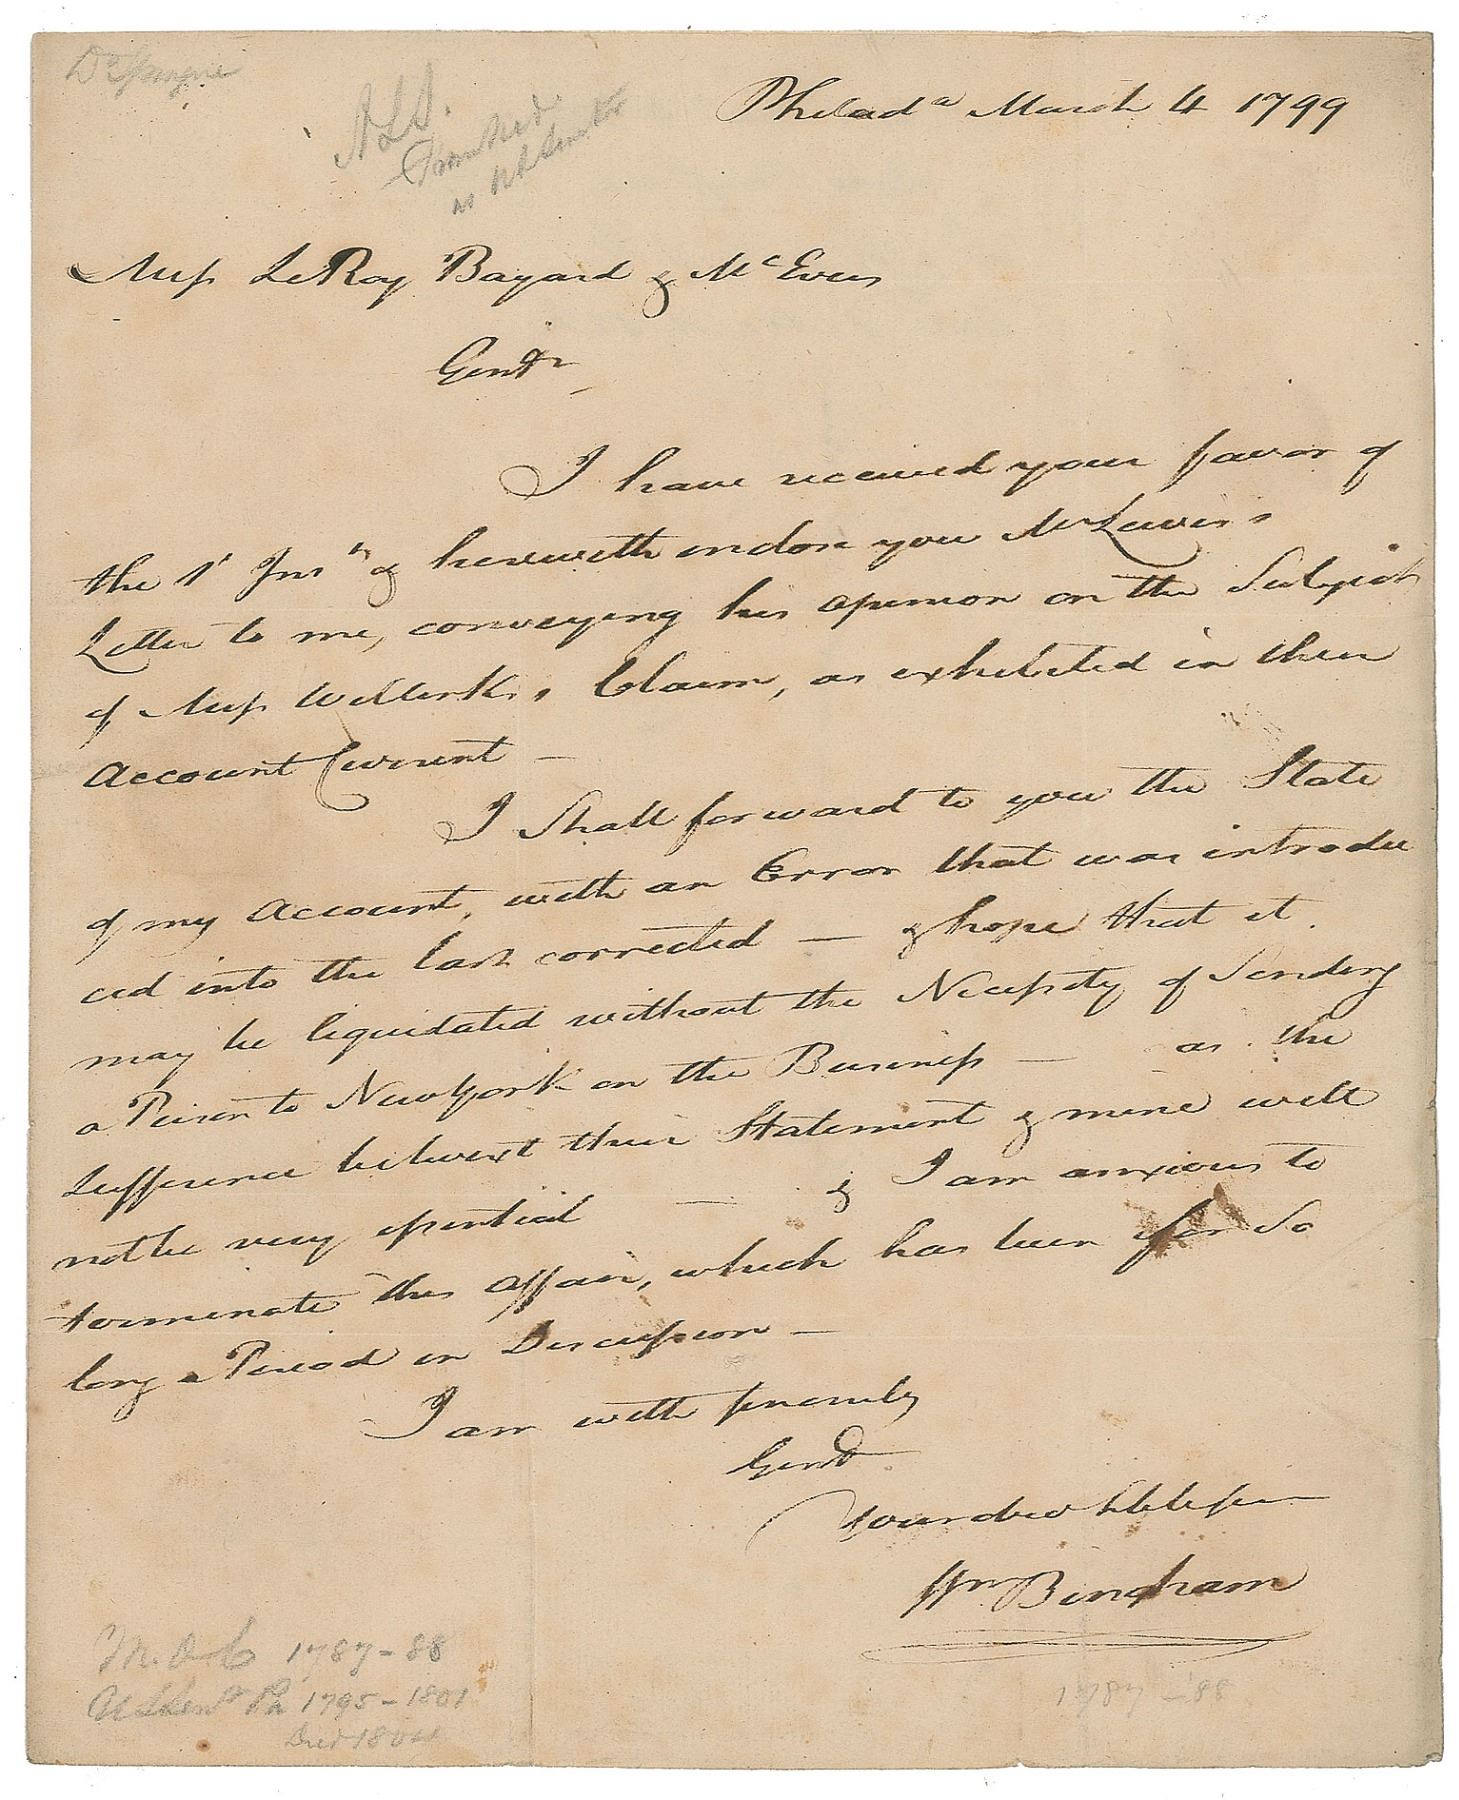 Philad^a March 4 1799
ALS.
Franked
as US Senator
Mess LeRoy Bayard & M^cEvers
Gent^n
I have received your favor of
the 1^t Ins^t & herewith endose you M^r Lewis's
Letter to me, conveying his Opinion on the Subject
of Mess Willinks, Claim, as exhibited in their
Account Current —
I Shall forward to you the State
of my Account, with an Error that was introdu
ced into the last corrected — & hope that it
may be liquidated without the Necessity of Sending
a Person to New York on the Business — as the
Difference betwixt their Statement & mine will
not be very essential — & I am anxious to
terminate this Affair, which has been for So
long a Period in Discussion —
I am with sincerity
Gent
Your obed hble ser
Wm Bingham
M.O.C 1787-88
US Sen^r Pa 1795-1801
Died 1804
1787-'88